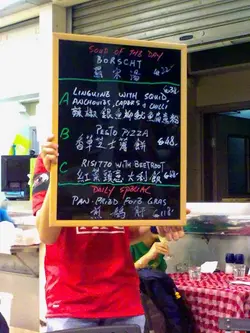 SOUP OF THE DAY
BORSCHT
羅宋湯
A LINGUINE WITH SQUID,
ANCHOVIES, CAPERS & CHILLI
辣椒銀魚柳魷魚意粉
B PESTO PIZZA
香草芝士薄餅 $48.
C RISITTO WITH BEETROOT
紅菜頭意大利飯
DAILY SPECIAL
PAN-FRIED FOIE GRAS
煎鵝肝